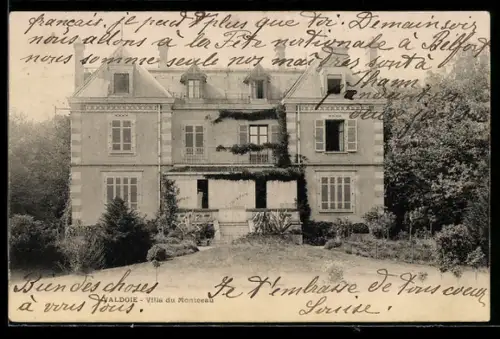 français, je peut plus que toi. Demain soir
nous allons à la Fête nationale à Belfort
nous somme seule nos mari sont à
Thann
Bien des choses
à vous tous.
VALDOIE - Villa du Monceau
Je t'embrasse de tous coeur
Louise.